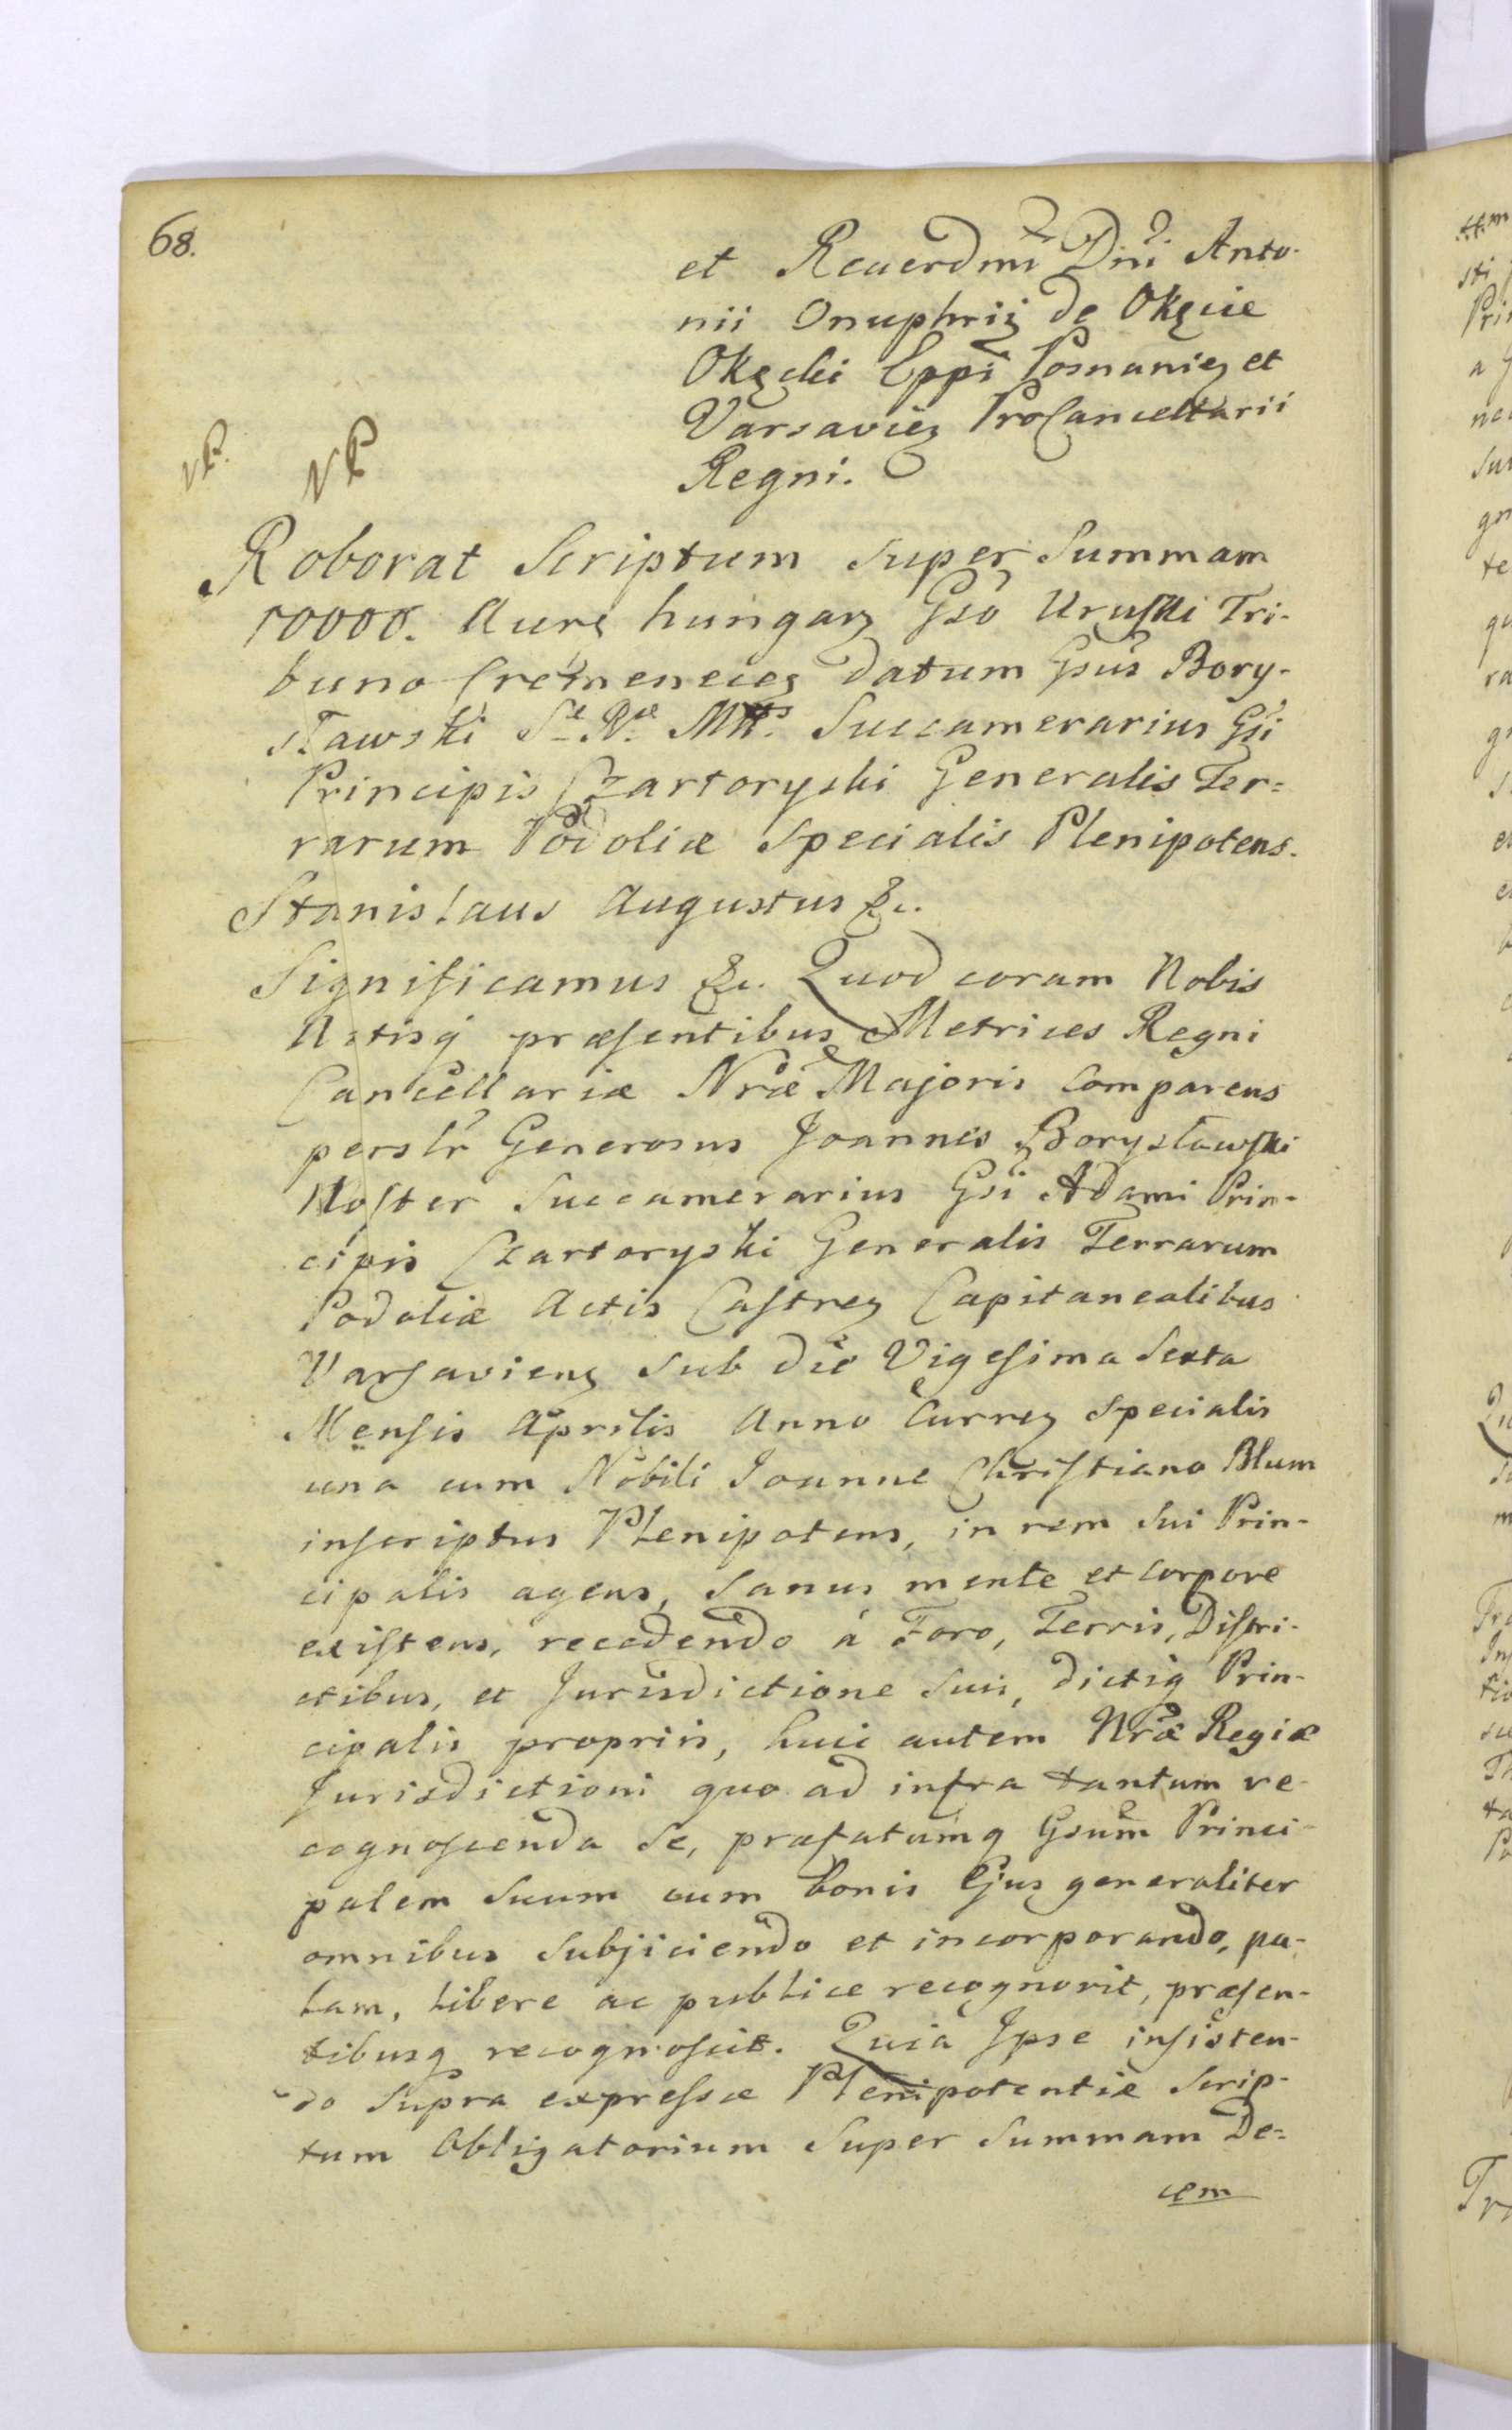 68.
et Reverdmi Dni Anto-
nii Onuphrij de Okęcie
Okęcki Eppi Posnanieꝫ et
Varsavieꝫ ProCancellarii
Regni.
NP. NP
Roborat Scriptum super Summam
10000. Aure hungarꝫ Gso Uruski Tri-
buno Cremeneceꝫ datum Gsus Bory-
sławski Sæ Ræ Mttis Succamerarius Gsi
Principis Czartoryski Generalis Ter=
rarum Podoliæ Specialis Plenipotens.
Stanislaus Augustus &c.
Significamus &c. Quod coram Nobis
Actisq́ præsentibus Metrices Regni
Cancellariæ Nræ Majoris Comparens
perslr Generosus Joannes Borysławski
Noster Succamerarius Gsi Adami Prin-
cipis Czartoryski Generalis Terrarum
Podoliæ Actis Castreꝫ Capitanealibus
Varsavienꝫ Sub die Vigesima Sexta
Mensis Aprilis Anno Curreꝫ Specialis
una cum Nobili Joanne Christiano Blum
inscriptus Plenipotens, in rem Sui Prin-
cipalis agens, Sanus mente et Corpore
existens, recedendo á Foro, Terris, Distri-
ctibus, et Jurisdictione Suis, dictiq Prin-
cipalis propriis, huic autem Nræ Regiæ
Jurisdictioni quo ad infra tantum re-
cognoscenda Se, præfatumq Gsum Princi-
palem Suum cum bonis Ejus generaliter
omnibus Subjiciendo et incorporando, pa-
lam, libere ac publice recognovit, præsen-
tibusq recognoscit. Quia Ipse insisten-
do Supra expressæ Plenipotentiæ Scrip-
tum Obligatorium Super Summam De=
cem